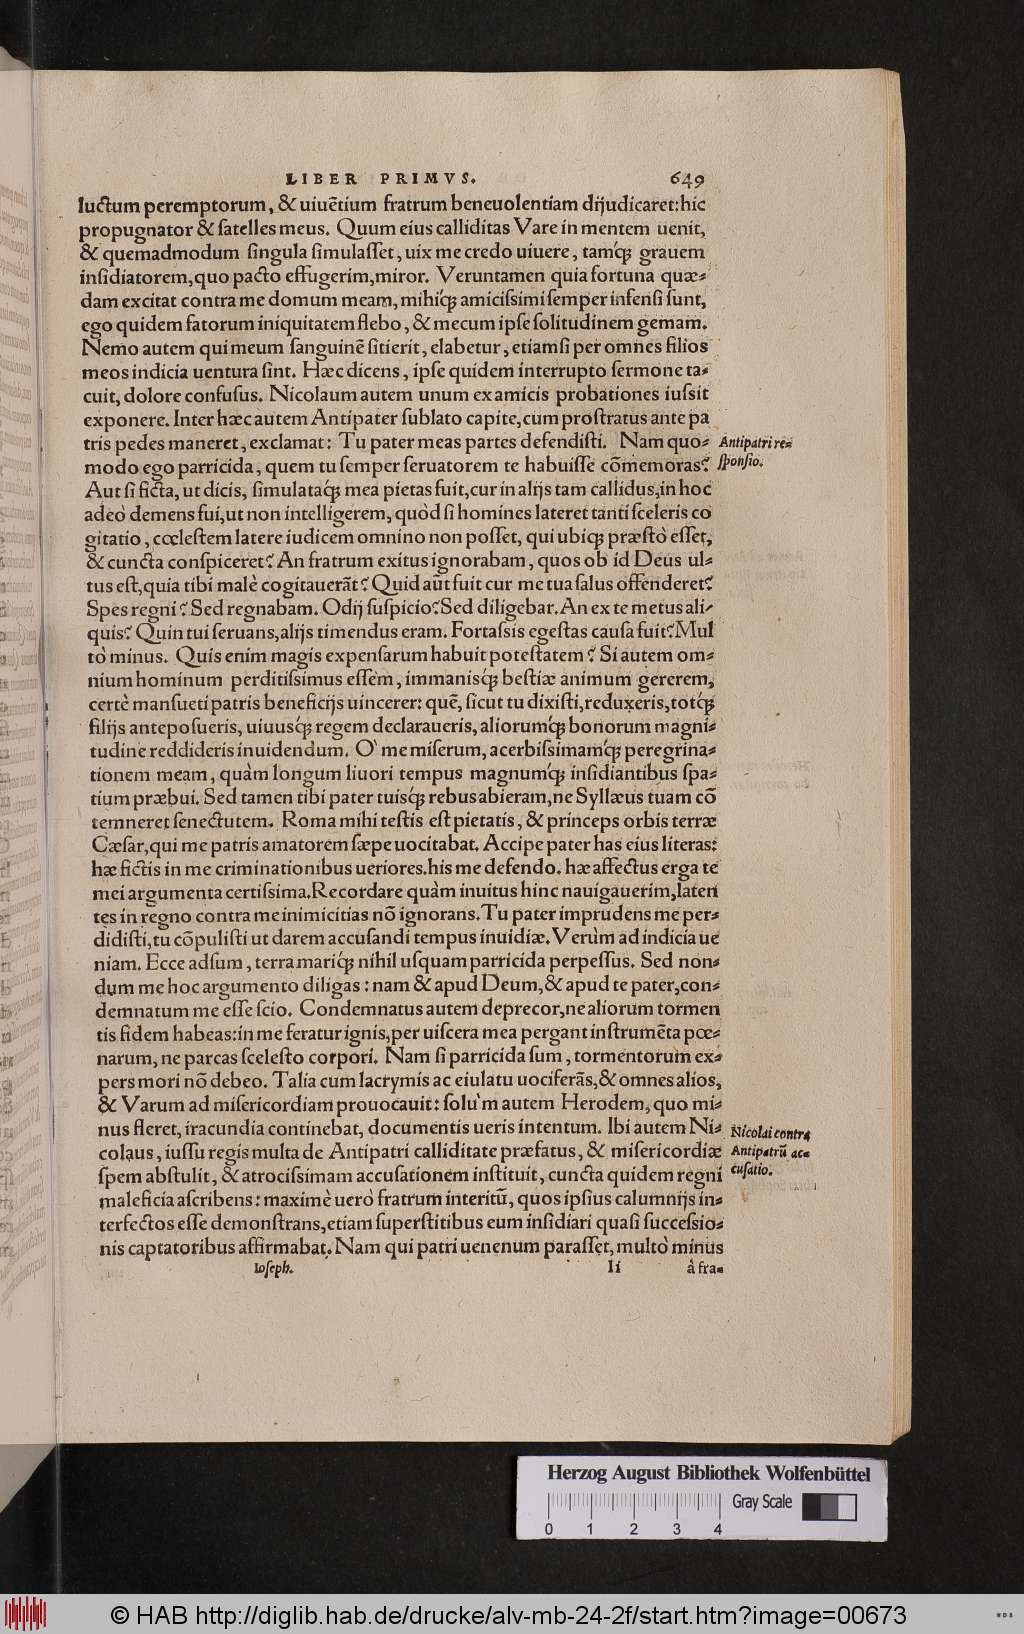 LIBER PRIMVS. 649
luctum peremptorum, & uiuẽtium fratrum beneuolentiam dijudicaret: hic
propugnator & satelles meus. Quum eius calliditas Vare in mentem uenit,
& quemadmodum singula simulasset, uix me credo uiuere, tamq́; grauem
insidiatorem, quo pacto effugerim, miror. Veruntamen quia fortuna quæ-
dam excitat contra me domum meam, mihiq́; amicissimi semper infensi sunt,
ego quidem fatorum iniquitatem flebo, & mecum ipse solitudinem gemam.
Nemo autem qui meum sanguinẽ sitierit, elabetur, etiamsi per omnes filios
meos indicia uentura sint. Hæc dicens, ipse quidem interrupto sermone ta-
cuit, dolore confusus. Nicolaum autem unum ex amicis probationes iussit
exponere. Inter hæc autem Antipater sublato capite, cum prostratus ante pa
tris pedes maneret, exclamat: Tu pater meas partes defendisti. Nam quo-
modo ego parricida, quem tu semper seruatorem te habuisse cõmemoras?
Antipatri re-
sponsio.
Aut si ficta, ut dicis, simulataq́; mea pietas fuit, cur in alijs tam callidus, in hoc
adeò demens fui, ut non intelligerem, quòd si homines lateret tanti sceleris co
gitatio, cœlestem latere iudicem omnino non posset, qui ubiq; præstò esset,
& cuncta conspiceret? An fratrum exitus ignorabam, quos ob id Deus ul-
tus est, quia tibi malè cogitauerãt? Quid aũt fuit cur me tua salus offenderet?
Spes regni? Sed regnabam. Odij suspicio? Sed diligebar. An ex te metus ali-
quis? Quin tui seruans, alijs timendus eram. Fortassis egestas causa fuit? Mul
tò minus. Quis enim magis expensarum habuit potestatem? Si autem om-
nium hominum perditissimus essem, immanisq́; bestiæ animum gererem,
certè mansueti patris beneficijs uincerer: quẽ, sicut tu dixisti, reduxeris, totq́;
filijs anteposueris, uiuusq́; regem declaraueris, aliorumq́; bonorum magni-
tudine reddideris inuidendum. O' me miserum, acerbissimamq́; peregrina-
tionem meam, quàm longum liuori tempus magnumq́; insidiantibus spa-
tium præbui. Sed tamen tibi pater tuisq́; rebus abieram, ne Syllæus tuam cõ
temneret senectutem. Roma mihi testis est pietatis, & princeps orbis terræ
Cæsar, qui me patris amatorem sæpe uocitabat. Accipe pater has eius literas:
hæ fictis in me criminationibus ueriores. his me defendo. hæ affectus erga te
mei argumenta certissima. Recordare quàm inuitus hinc nauigauerim, laten
tes in regno contra me inimicitias nõ ignorans. Tu pater imprudens me per-
didisti, tu cõpulisti ut darem accusandi tempus inuidiæ. Verùm ad indicia ue
niam. Ecce adsum, terra mariq́; nihil usquam parricida perpessus. Sed non-
dum me hoc argumento diligas: nam & apud Deum, & apud te pater, con-
demnatum me esse scio. Condemnatus autem deprecor, ne aliorum tormen
tis fidem habeas: in me feratur ignis, per uiscera mea pergant instrumẽta pœ-
narum, ne parcas scelesto corpori. Nam si parricida sum, tormentorum ex-
pers mori nõ debeo. Talia cum lacrymis ac eiulatu uociferãs, & omnes alios,
& Varum ad misericordiam prouocauit: solùm autem Herodem, quo mi-
nus fleret, iracundia continebat, documentis ueris intentum. Ibi autem Ni-
colaus, iussu regis multa de Antipatri calliditate præfatus, & misericordiæ
spem abstulit, & atrocissimam accusationem instituit, cuncta quidem regni
Nicolai contra
Antipatrũ ac-
cusatio.
maleficia ascribens: maximè uerò fratrum interitũ, quos ipsius calumnijs in-
terfectos esse demonstrans, etiam superstitibus eum insidiari quasi successio-
nis captatoribus affirmabat. Nam qui patri uenenum parasset, multò minus
Ioseph. Ii à fra-
Herzog August Bibliothek Wolfenbüttel
Gray Scale
0 1 2 3 4
© HAB http://diglib.hab.de/drucke/alv-mb-24-2f/start.htm?image=00673